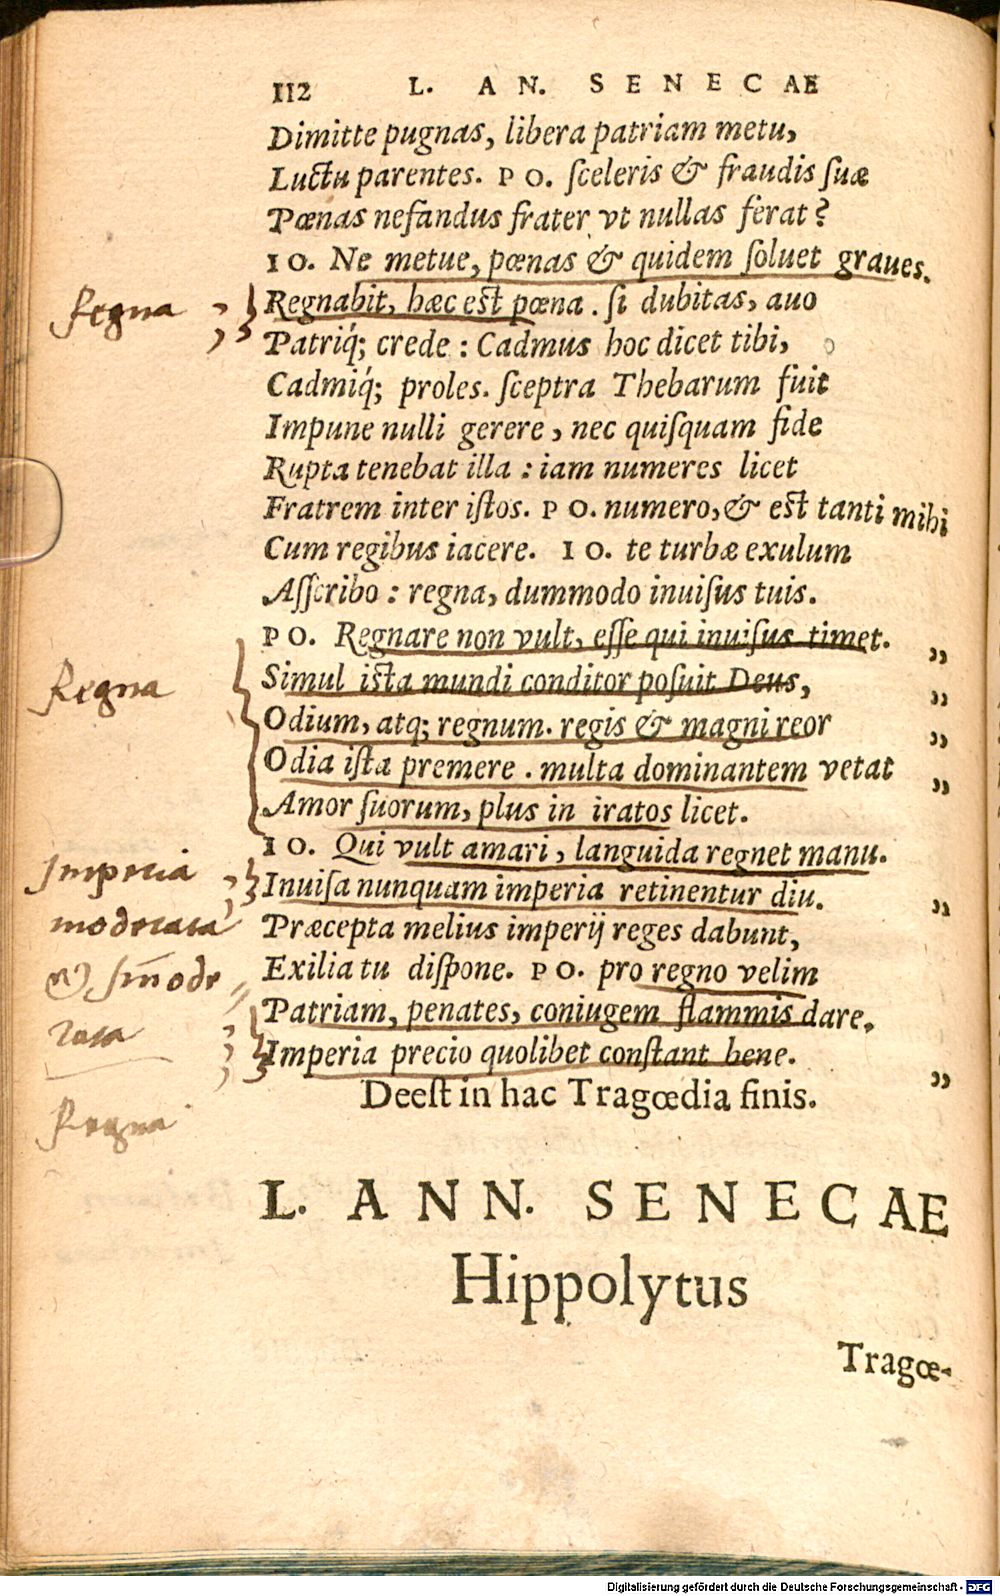 112 L. AN. SENECAE
Dimitte pugnas, libera patriam metu,
Luctu parentes. PO. ſceleris & fraudis ſuæ
Pœnas nefandus frater vt nullas ferat?
IO. Ne metue, pœnas & quidem ſoluet graues.
Regna
Regnabit, hæc est pœna. ſi dubitas, auo
Patriq́; crede: Cadmus hoc dicet tibi,
Cadmiq́; proles. ſceptra Thebarum fuit
Impune nulli gerere, nec quiſquam fide
Rupta tenebat illa: iam numeres licet
Fratrem inter iſtos. PO. numero, & est tanti mihi
Cum regibus iacere. IO. te turbæ exulum
Aſſcribo: regna, dummodo inuiſus tuis.
PO. Regnare non vult, eſſe qui inuiſus timet. ”
Regna
Simul ista mundi conditor poſuit Deus, ”
Odium, atq; regnum. regis & magni reor ”
Odia iſta premere. multa dominantem vetat ”
Amor ſuorum, plus in iratos licet.
IO. Qui vult amari, languida regnet manu.
Imperia
Inuiſa nunquam imperia retinentur diu. ”
moderata
Præcepta melius imperij reges dabunt,
& im̄ode
Exilia tu diſpone. PO. pro regno velim
Patriam, penates, coniugem flammis dare.
rata
Imperia precio quolibet conſtant bene. ”
Deeſt in hac Tragœdia finis.
Regna
L. ANN. SENECAE
Hippolytus
Tragœ-
Digitalisierung gefördert durch die Deutsche Forschungsgemeinschaft - DFG